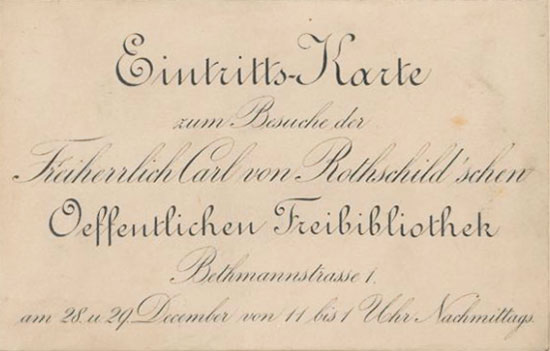 Eintritts-Karte
zum Besuche der
Freiherrlich Carl von Rothschild'schen
Oeffentlichen Freibibliothek
Bethmannstrasse 1.
am 28. u. 29. December von 11 bis 1 Uhr Nachmittags.